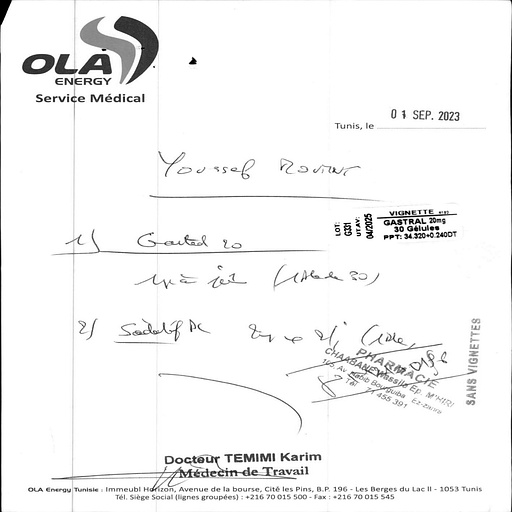 OLA
ENERGY
Service Médical
Tunis, le 01 SEP. 2023
Youssef
VIGNETTE
GASTRAL 20mg
30 Gélules
PPT: 34.320+0.240DT
LOT:
G331
UT.AV:
04/2025
1) Gastral 20
2) Sédatif PC
PHARMACIE
CHAABANE Wassila Ep. M'HIRI
Av. Habib Bourguiba, Ez-zahra
Tél 71 455 391
SANS VIGNETTES
Docteur TEMIMI Karim
Médecin de Travail
OLA Energy Tunisie : Immeubl Horizon, Avenue de la bourse, Cité les Pins, B.P. 196 - Les Berges du Lac II - 1053 Tunis
Tél. Siège Social (lignes groupées) : +216 70 015 500 - Fax : +216 70 015 545